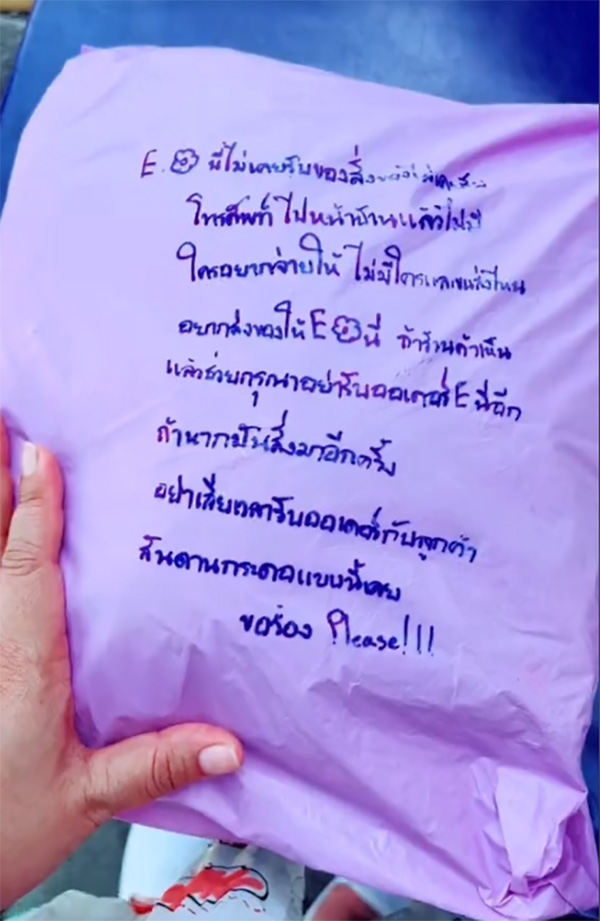 E. นี้ไม่เคยรับของสั่ง
โทรศัพท์ ไปหน้าบ้านแล้วไม่มี
ใครอยากจ่ายให้ ไม่มีใครแถวขนส่งไหน
อยากส่งของให้ E นี่ ถ้าร้านค้าเห็น
แล้วช่วยกรุณาอย่ารับออเดอร์ E นี่อีก
ถ้าหากมันสั่งมาอีกครั้ง
อย่าเสียเวลารับออเดอร์กับลูกค้า
สันดานกระดอแบบนี้เลย
ขอร้อง Please!!!